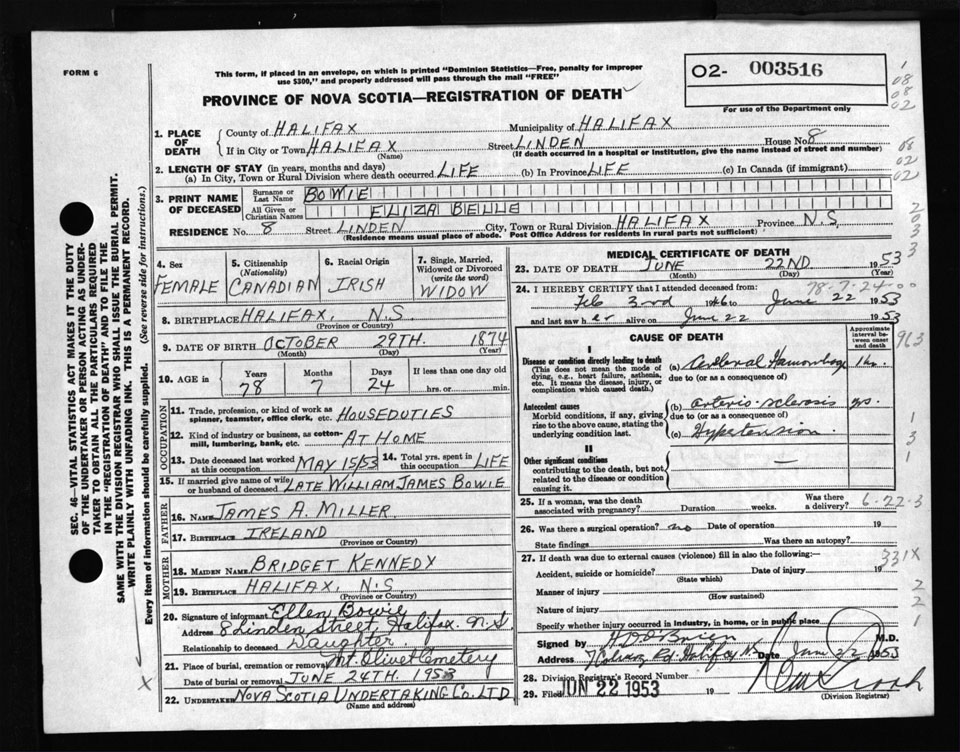 FORM 6
This form, if placed in an envelope, on which is printed "Dominion Statistics—Free, penalty for improper
use $300," and properly addressed will pass through the mail "FREE"
02- 003516
For use of the Department only
PROVINCE OF NOVA SCOTIA—REGISTRATION OF DEATH
1. PLACE OF DEATH
County of HALIFAX Municipality of HALIFAX
If in City or Town HALIFAX (Name) Street LINDEN House No. 8
(If death occurred in a hospital or institution, give the name instead of street and number)
2. LENGTH OF STAY (in years, months and days)
(a) In City, Town or Rural Division where death occurred LIFE (b) In Province LIFE (c) In Canada (if immigrant)
3. PRINT NAME OF DECEASED
Surname or Last Name BOWIE
All Given or Christian Names ELIZA BELLE
RESIDENCE No. 8 Street LINDEN City, Town or Rural Division HALIFAX Province N.S.
(Residence means usual place of abode. Post Office Address for residents in rural parts not sufficient)
4. Sex
FEMALE
5. Citizenship
(Nationality)
CANADIAN
6. Racial Origin
IRISH
7. Single, Married,
Widowed or Divorced
(write the word)
WIDOW
8. BIRTHPLACE HALIFAX, N.S.
(Province or Country)
9. DATE OF BIRTH OCTOBER 29TH. 1874
(Month) (Day) (Year)
10. AGE in
Years Months Days If less than one day old
78 7 24 hrs. or min.
OCCUPATION
11. Trade, profession, or kind of work as
spinner, teamster, office clerk, etc. HOUSEDUTIES
12. Kind of industry or business, as cotton-
mill, lumbering, bank, etc. AT HOME
13. Date deceased last worked
at this occupation MAY 15/53
14. Total yrs. spent in
this occupation LIFE
15. If married give name of wife
or husband of deceased LATE WILLIAM JAMES BOWIE
FATHER
16. NAME JAMES A. MILLER
17. BIRTHPLACE IRELAND
(Province or Country)
MOTHER
18. MAIDEN NAME BRIDGET KENNEDY
19. BIRTHPLACE HALIFAX, N.S.
(Province or Country)
20. Signature of informant Ellen Bowie
Address 8 Linden Street, Halifax. N.S.
Relationship to deceased Daughter
21. Place of burial, cremation or removal Mt. Olivet Cemetery
Date of burial or removal JUNE 24TH. 1953
22. UNDERTAKER NOVA SCOTIA UNDERTAKING CO. LTD
(Name and address)
MEDICAL CERTIFICATE OF DEATH
23. DATE OF DEATH JUNE 22ND 1953
(Month) (Day) (Year)
78-7-24-00
24. I HEREBY CERTIFY that I attended deceased from:
Feb 3rd 1946 to June 22 1953
and last saw her alive on June 22 1953
CAUSE OF DEATH
Approximate
interval be-
tween onset
and death
I
Disease or condition directly leading to death
(This does not mean the mode of
dying, e.g., heart failure, asthenia,
etc. It means the disease, injury, or
complication which caused death.)
(a) Cerebral Hemorrhage 1 hr.
due to (or as a consequence of)
Antecedent causes
Morbid conditions, if any, giving
rise to the above cause, stating the
underlying condition last.
(b) arterio-sclerosis yrs.
due to (or as a consequence of)
(c) Hypertension.
II
Other significant conditions
contributing to the death, but not
related to the disease or condition
causing it.
25. If a woman, was the death
associated with pregnancy? Duration weeks. Was there
a delivery?
6-22-3
26. Was there a surgical operation? no Date of operation 19
State findings Was there an autopsy?
27. If death was due to external causes (violence) fill in also the following:—
Accident, suicide or homicide? Date of injury 19
(State which)
331X
Manner of injury
(How sustained)
Nature of injury
Specify whether injury occurred in industry, in home, or in public place
Signed by M.D.
Address Halifax NS Date June 22 1953
28. Division Registrar's Record Number
29. Filed JUN 22 1953 19
(Division Registrar)
SEC. 46—VITAL STATISTICS ACT MAKES IT THE DUTY
OF THE UNDERTAKER OR PERSON ACTING AS UNDER-
TAKER TO OBTAIN ALL THE PARTICULARS REQUIRED
IN THE "REGISTRATION OF DEATH" AND TO FILE THE
SAME WITH THE DIVISION REGISTRAR WHO SHALL ISSUE THE BURIAL PERMIT.
WRITE PLAINLY WITH UNFADING INK. THIS IS A PERMANENT RECORD.
Every item of information should be carefully supplied. (See reverse side for instructions.)